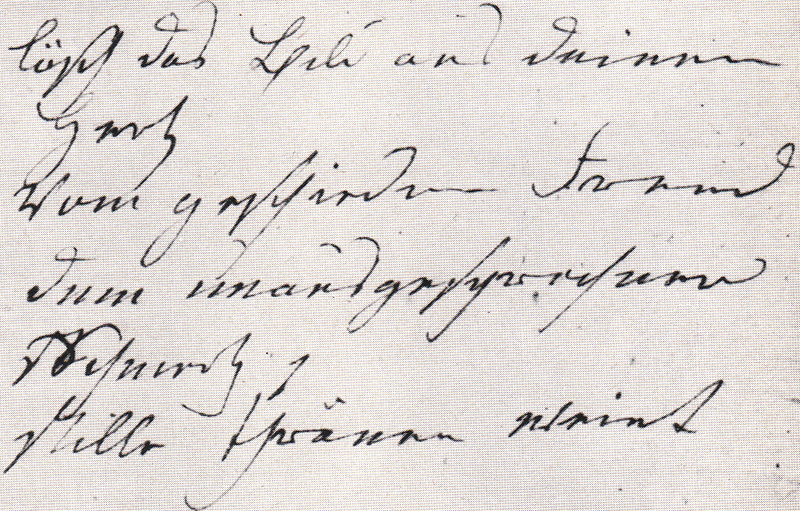 lösch das Bild aus deinem
Herz
Vom geschiednen Freund
dem unausgesprochner
Schmerz,
stille Thränen weint